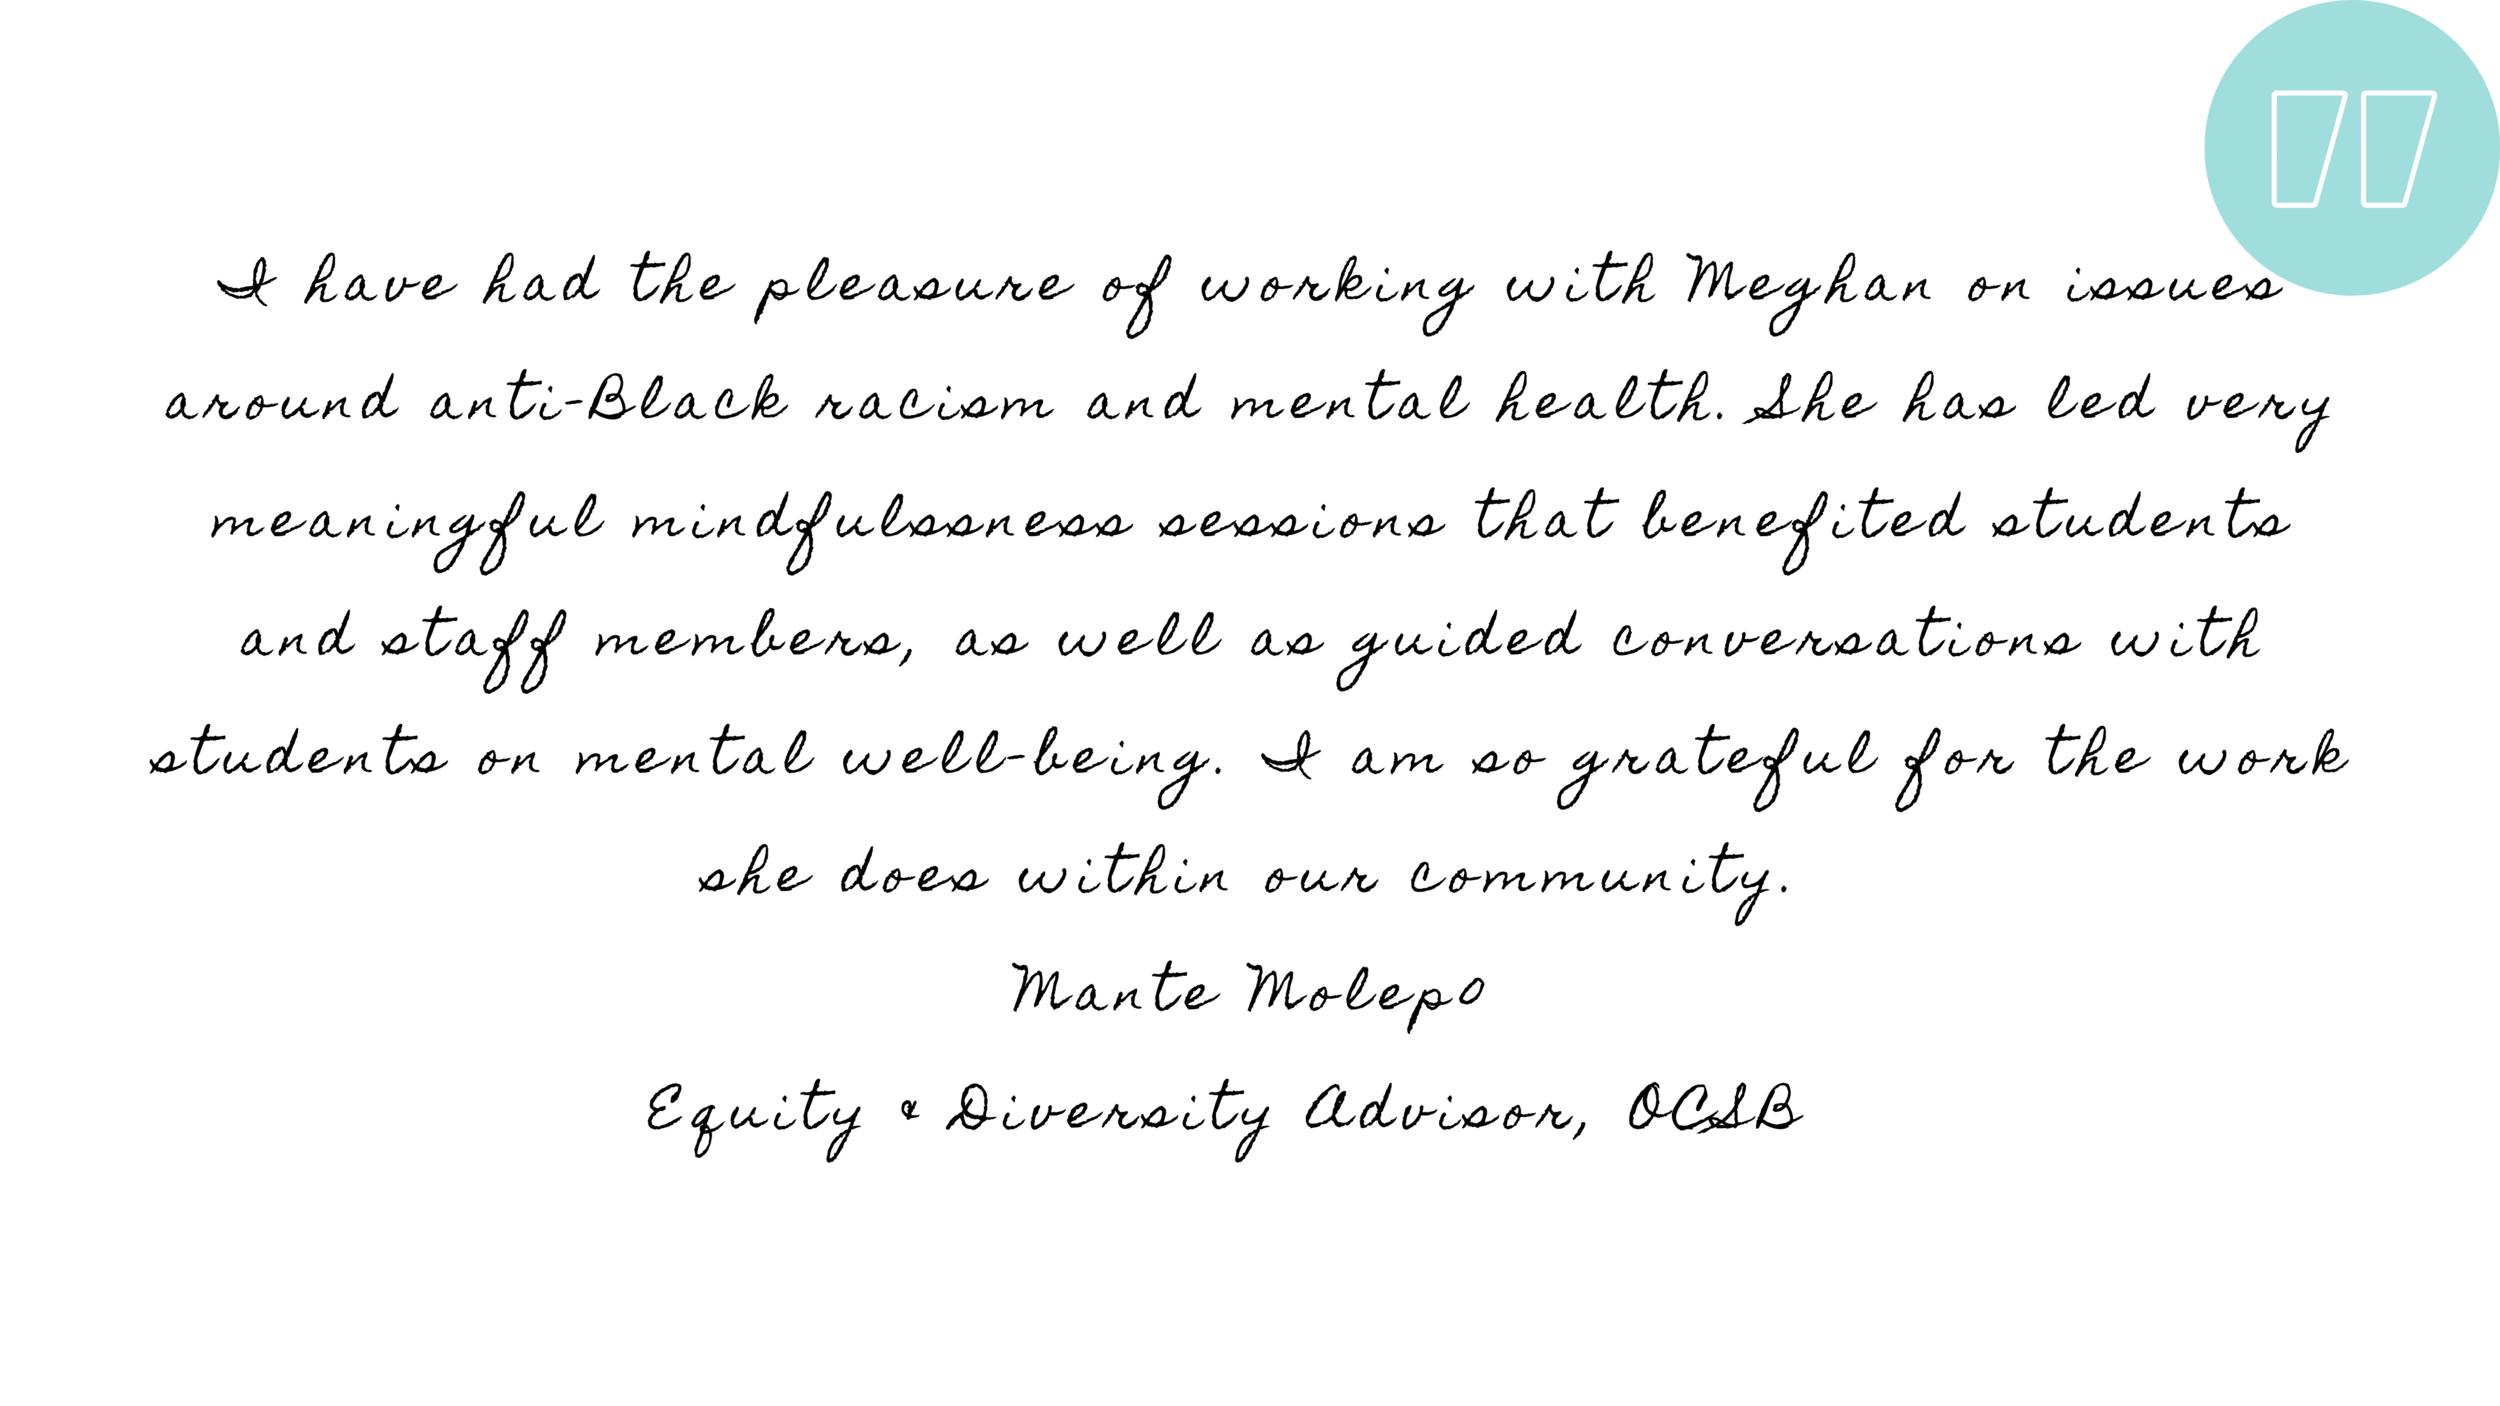 I have had the pleasure of working with Meghan on issues
around anti-Black racism and mental health. She has led very
meaningful mindfulssness sessions that benefited students
and staff members, as well as guided conversations with
students on mental well-being. I am so grateful for the work
she does within our community.
Mante Molepo
Equity & Diversity Advisor, OCSB